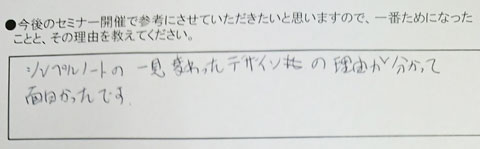 ●今後のセミナー開催で参考にさせていただきたいと思いますので、一番ためになった
ことと、その理由を教えてください。
シンプルノートの一見変わったデザインの理由が分かって
面白かったです.